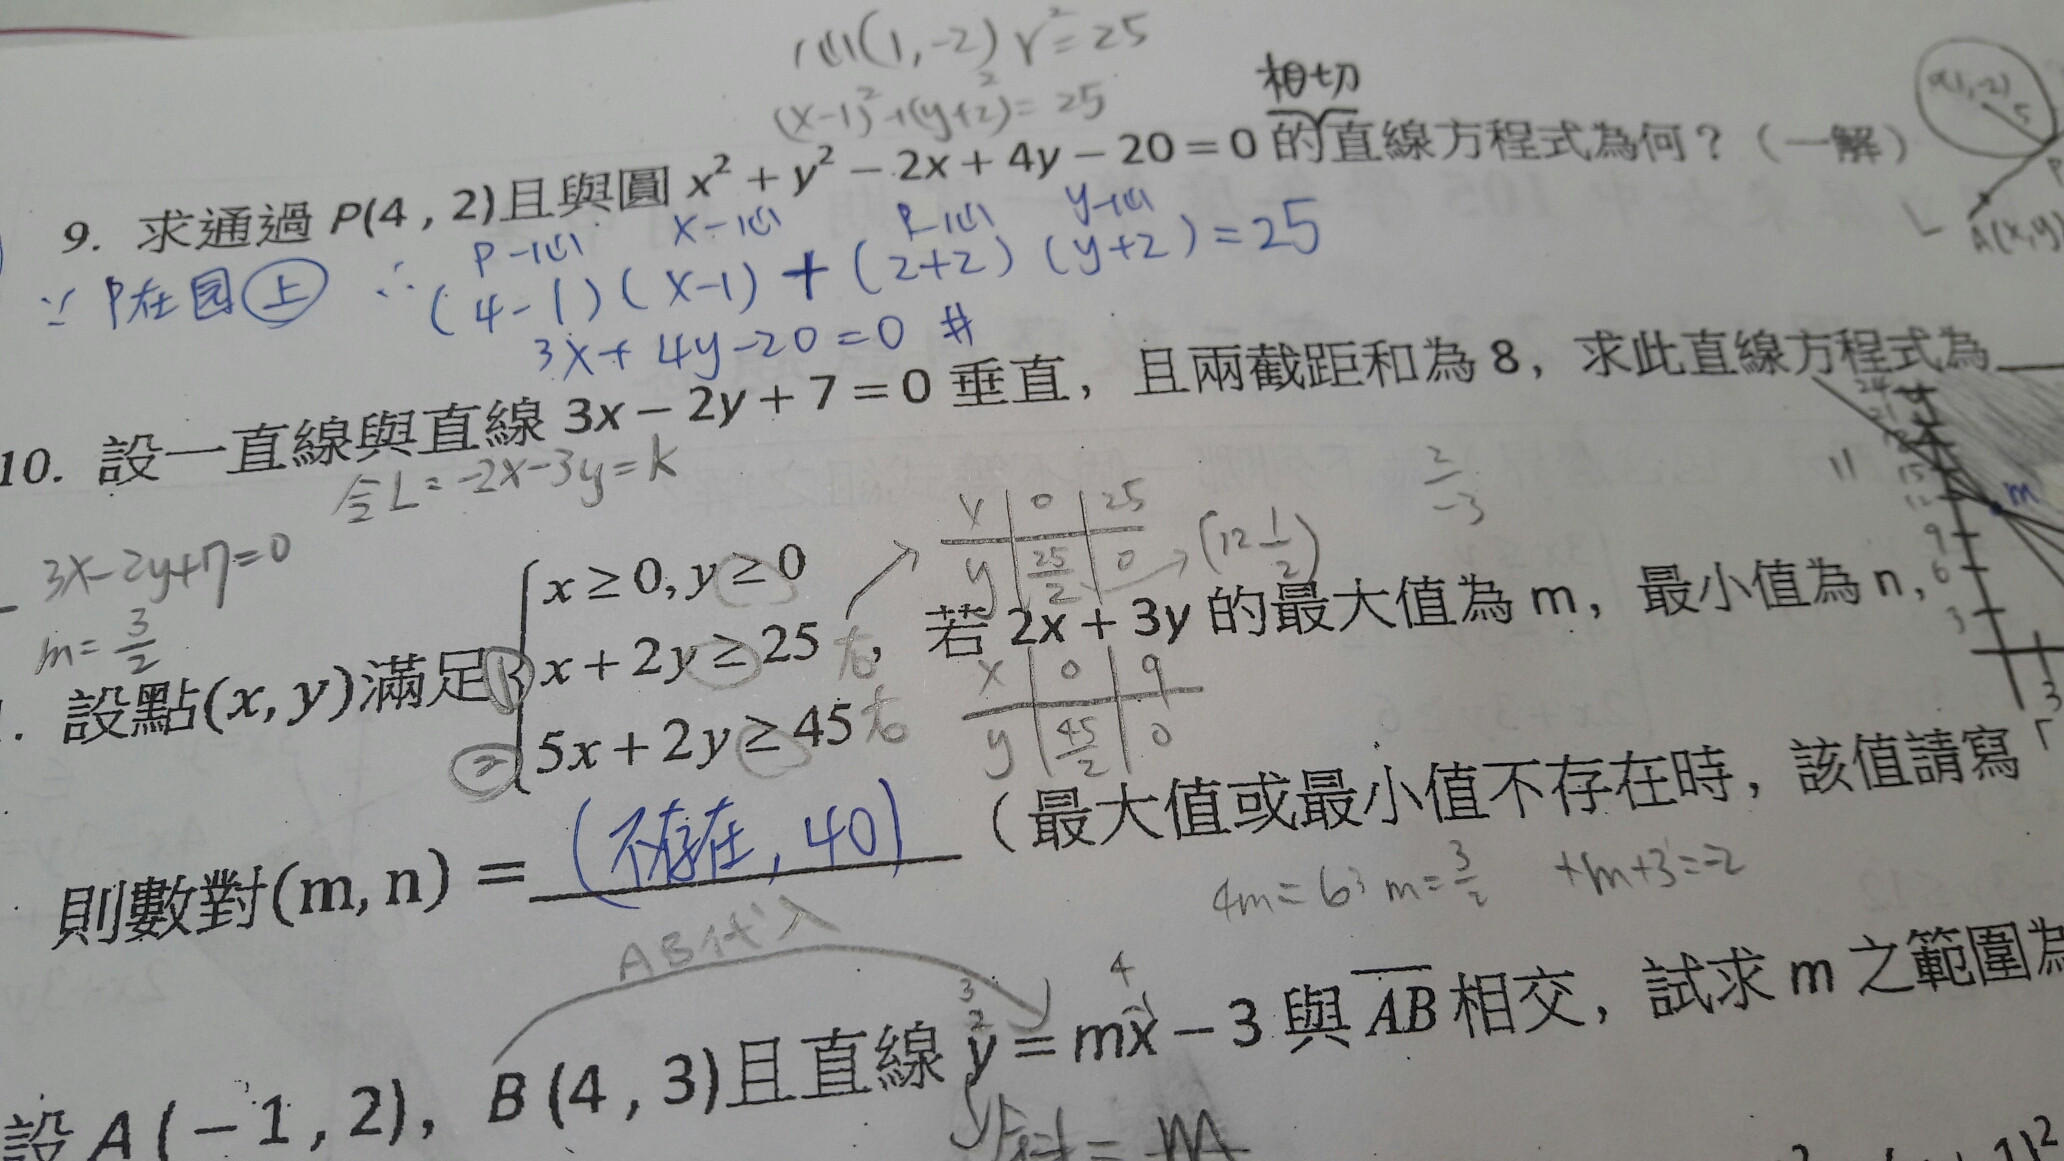 心(1,-2) r²=25
(x-1)²+(y+2)²=25
相切
9. 求通過 P(4 , 2)且與圓 x² + y² − 2x + 4y − 20 = 0 的直線方程式為何？（一解）
P-心 x-心 P-心 y-心
∵ P在园上 ∴ (4-1)(x-1)+(2+2)(y+2)=25
3x+4y-20=0 #
10. 設一直線與直線 3x − 2y + 7 = 0 垂直，且兩截距和為 8，求此直線方程式為
令L=-2x-3y=k
3x-2y+7=0
m=3/2
2/-3
x 0 25
y 25/2 0
(12 1/2)
x ≥ 0, y ≥ 0
. 設點(x, y)滿足 x + 2y ≥ 25 右，若 2x + 3y 的最大值為 m，最小值為 n，
5x + 2y ≥ 45 右
x 0 9
y 45/2 0
則數對(m, n) = (不存在, 40) （最大值或最小值不存在時，該值請寫「
4m=6 m=3/2 +m+3=-2
AB代入
3 2 4
設 A(−1 , 2)，B(4 , 3)且直線 y = mx − 3 與 AB 相交，試求 m 之範圍為
A(x,y)
15
12
9
6
3
3
m